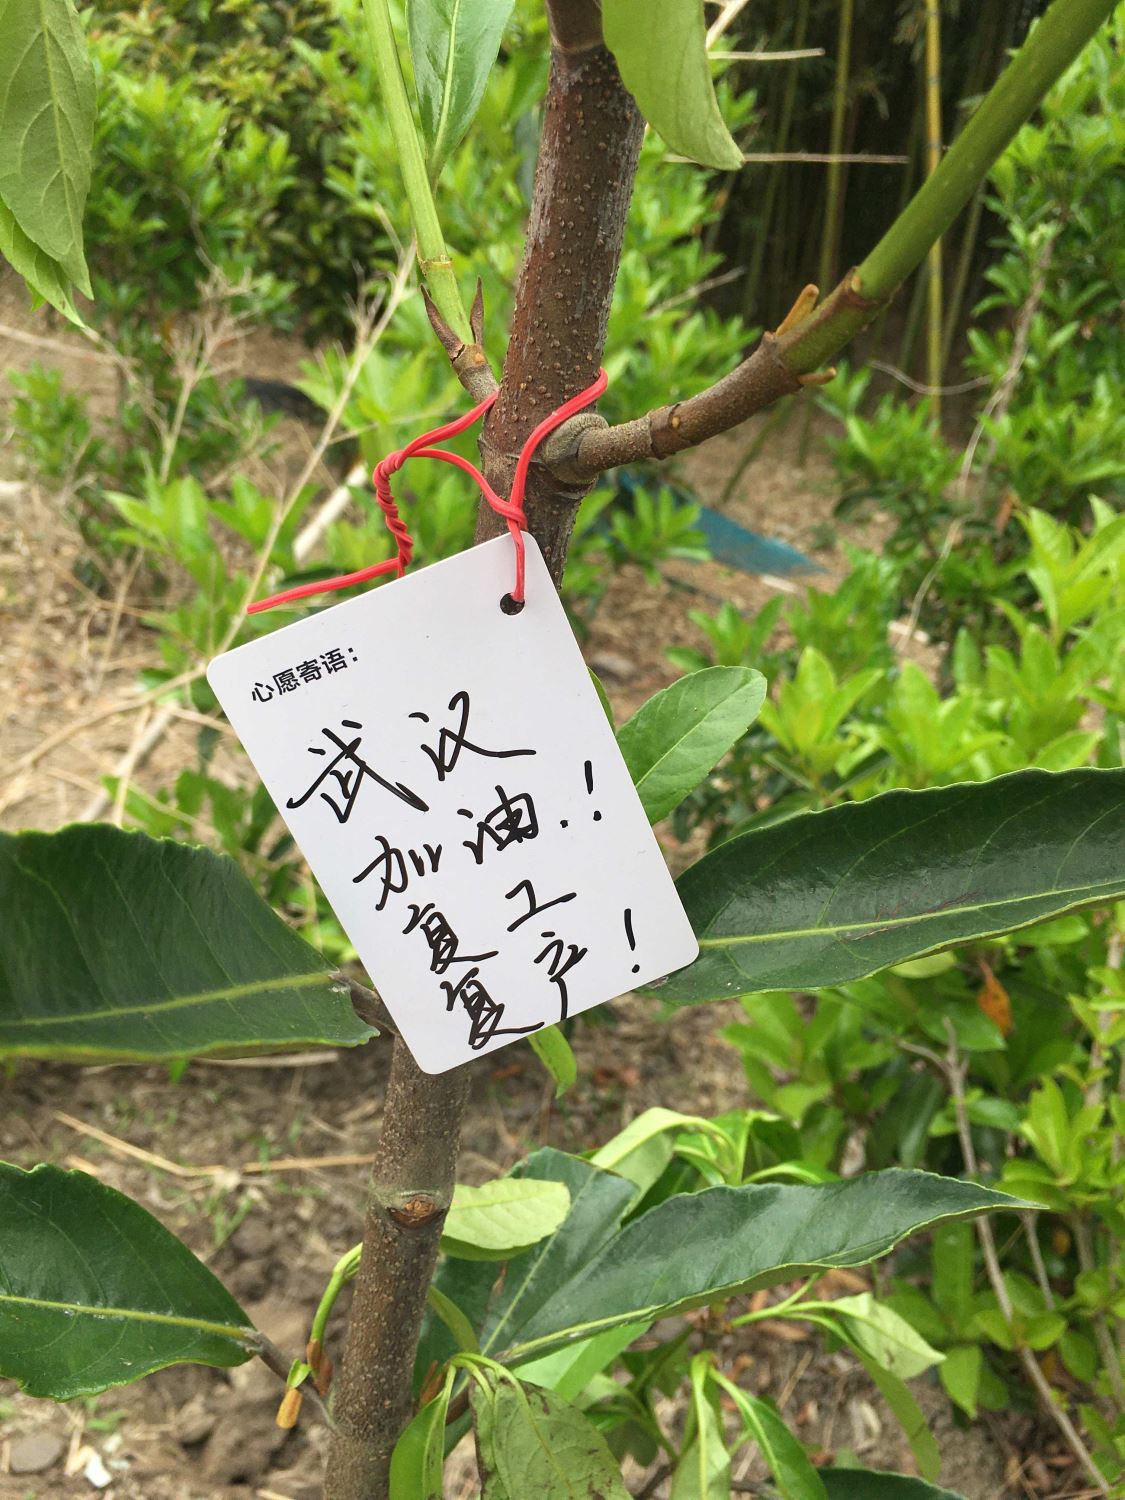 心愿寄语：
武汉
加油!!
复工
复产!